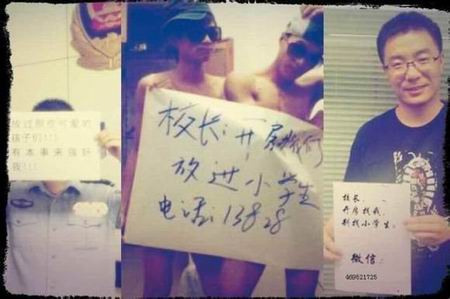 放过那些可爱的
孩子们!!!
有本事来强奸
我!!!
校长:开房找我们
放过小学生
电话:13828
校长,
开房找我,
别找小学生。
微信:
469521725